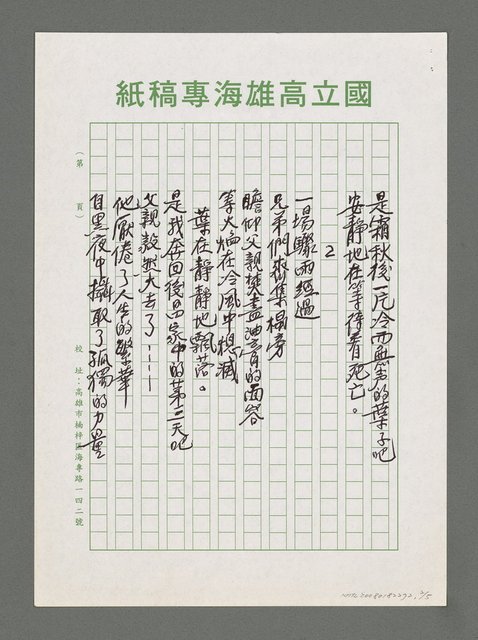 國立高雄海專稿紙
是霜秋後一片冷而無聲的葉子吧
安靜地在等待着死亡。
2
一場驟雨經過
兄弟們齊集榻旁
瞻仰父親焚盡油膏的面容
等火焰在冷風中熄滅
葉在靜靜地飄落。
是我奔回後昌家中的第二天吧
父親毅然大去了-----
他厭倦了人生的繁華
自黑夜中攝取了孤獨的力量
(第 頁)
校址:高雄市楠梓區海專路一四二號